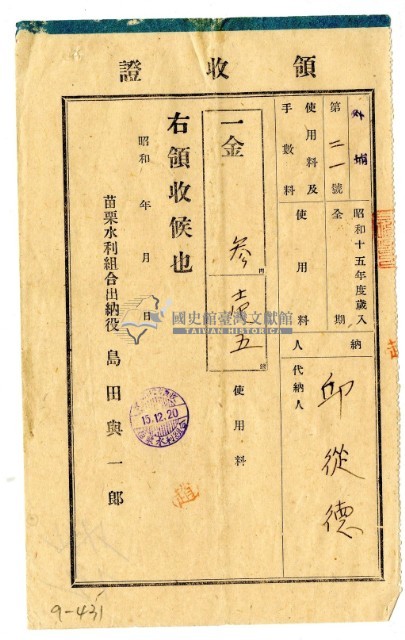 領收證
第二一號
昭和十五年度歲入
使用料及手數料
使用料
全期
納人
代納人
邱從德
一金
参円
壹五
使用料
右領收候也
昭和 年 月 日
苗栗水利組合出納役 島田與一郎
15.12.20
國史館臺灣文獻館
TAIWAN HISTORICA
9-431